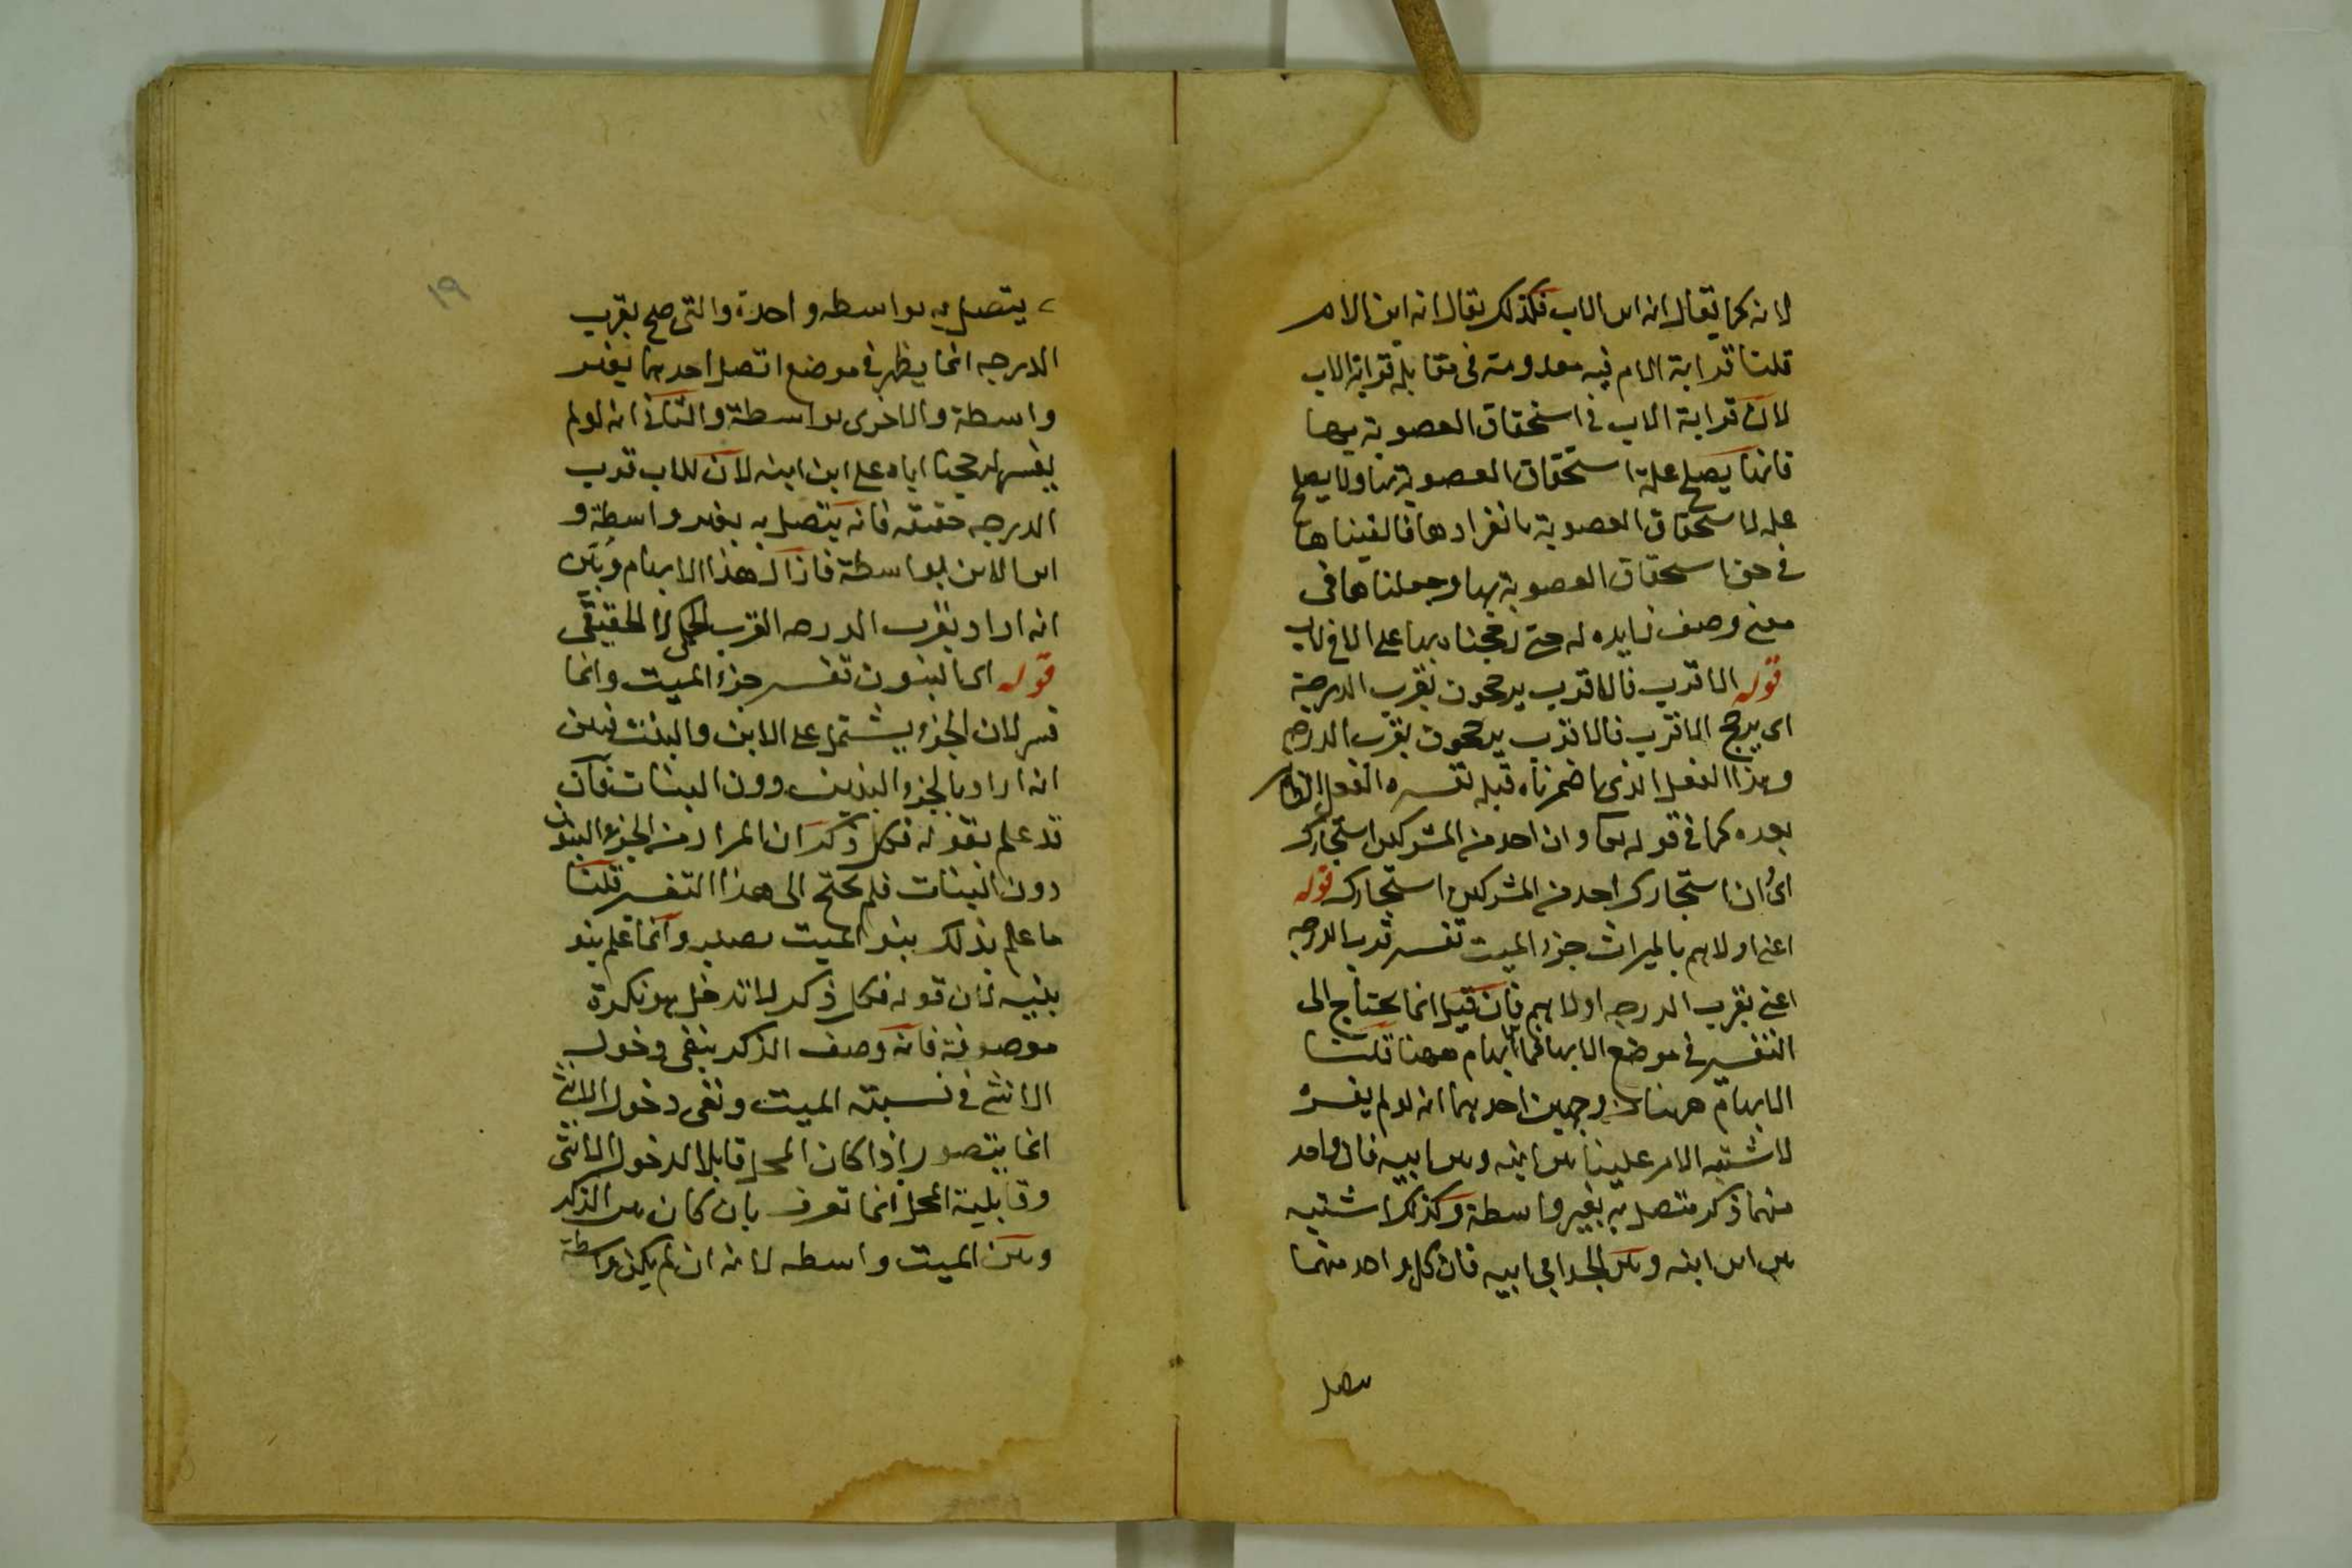 لانه كما يقال انه ابن الاب فكذلك يقال انه ابن الام
قلنا قرابة الام فيه معدومة فى مقابلة قرابة الاب
لان قرابة الاب فى استحقاق العصوبة بها
فانها يصلح علة استحقاق العصوبة بها ولا يصلح
علة لاستحقاق العصوبة بانفرادها فالغيناها
فى حق استحقاق العصوبة بها وجعلناها فى
معنى وصف زايده له حتى رجحنا بها على الاخ لاب
قوله الاقرب فالاقرب يرجحون بقرب الدرجة
اى يرجح الاقرب فالاقرب يرجحون بقرب الدرجه
وهذا الفعل الذى اضمرناه قبله تفسيره الفعل الظاهر
بعده كما فى قوله تعا وان احد من المشركين استجارك
اى ان استجارك احد من المشركين استجارك قوله
اعنى اولاهم بالميراث جزء الميت تفسير قرب الدرجه
اعنى بقرب الدرجه اولاهم فان قيل انما يحتاج الى
التفسير فى موضع الابهام فما الابهام ههنا قلنا
الابهام ههنا من وجهين احدهما انه لو لم يفسره
لاشتبه الامر علينا بين ابنه وبين ابيه فان واحد
منهما ذكر متصل به بغير واسطة وكذلك اشتبه
بين ابن ابنه وبين الجد ابى ابيه فان كل واحد منهما
يتصل
١٩
يتصل به بواسطه واحدة والترجيح بقرب
الدرجه انما يظهر فى موضع اتصل احدهما بغير
واسطة والاخرى بواسطة والثانى انه لو لم
يفسر لرجحنا اباه على ابن ابنه لان للاب قرب
الدرجه حقيقه فانه يتصل به بغير واسطة و
ابن الابن بواسطة فازال هذا الابهام وبين
انه اراد بقرب الدرجه القرب الحكمى لا الحقيقى
قوله اى البنون تفسير جزء الميت وانما
فسر لان الجزء يشتمل على الابن والبنت فبين
انه اراد بالجزء البنين دون البنات فان
قد علم بقوله فكل ذكر ان المراد من الجزء البنون
دون البنات فلم يحتج الى هذا التفسير قلنا
ما علم بذلك بنو الميت بصلبه وانما علم بنو
بنيه لان قوله فكل ذكر لا تدخل هو نكرة
موصوفة فانه وصف الذكر بنفى دخول
الانثى فى نسبته الميت ونفى دخول الانثى
انما يتصور اذا كان المحل قابلا لدخول الانثى
وقابلية المحل انما تعرف بان كان بين الذكر
وبين الميت واسطه لانه ان لم يكن واسطة